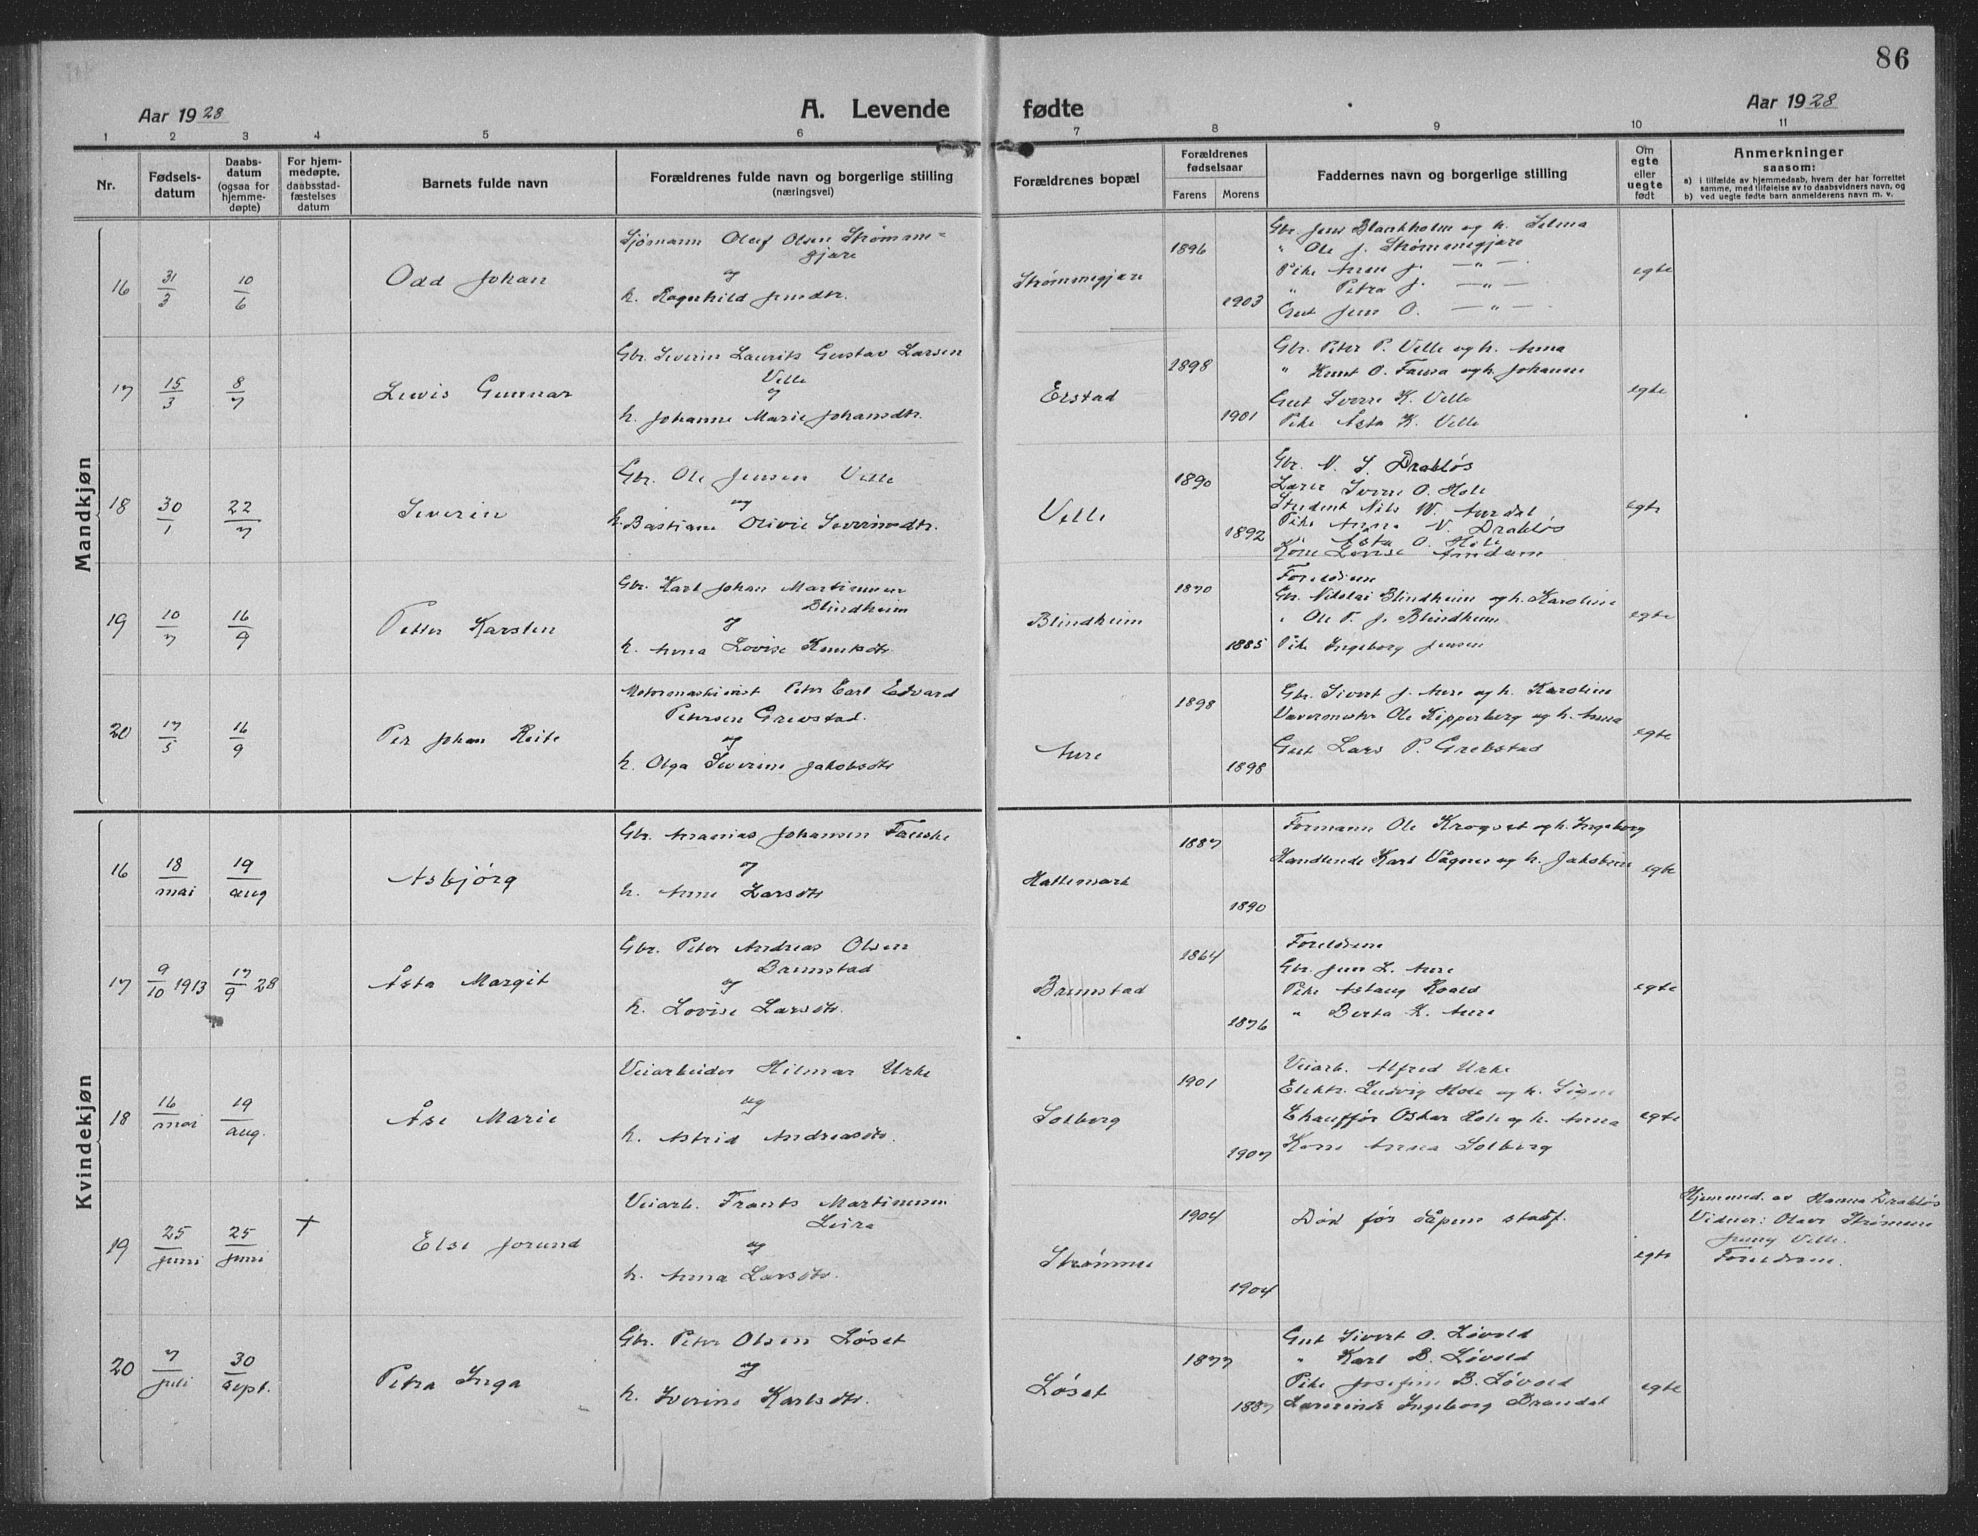 86
Aar 1928
A. Levende fødte
Aar 1928
1 2 3 4 5 6 7 8 9 10 11
Nr.
Fødselsdatum
Daabsdatum (ogsaa for hjemmedøpte)
For hjemmedøpte, daabsstadfæstelses datum
Barnets fulde navn
Forældrenes fulde navn og borgerlige stilling (næringsvei)
Forældrenes bopæl
Forældrenes fødselsaar
Farens Morens
Faddernes navn og borgerlige stilling
Om egte eller uegte født
Anmerkninger
saasom:
a) i tilfælde av hjemmedaab, hvem der har forrettet samme, med tilføielse av to daabsvidners navn, og
b) ved uegte fødte barn anmelderens navn m. v.
Mandkjøn
16 31/3 10/6 Odd Johan
Sjømann Oluf Olsen Strømmegjære
og
h. Ragnhild Jensdtr.
Strømmegjære
1896
1903
Gbr. Jens Blankholm og h. Selma
" Ole J. Strømmegjære
Pike Anne J. —"—
" Petra J. —"—
Gut Jens O. —"—
egte
17 15/3 8/7 Lewis Gunnar
Gbr. Severin Laurits Gustav Larsen
Velle
og
h. Johanne Marie Johansdtr.
Erstad
1898
1901
Gbr. Peter P. Velle og h. Anna
" Knut O. Fausa og h. Johanne
Gut Sverre K. Velle
Pike Asta K. Velle
egte
18 30/1 22/7 Severin
Gbr. Ole Jensen Velle
og
h. Bastiane Olivie Severinsdtr.
Velle
1890
1892
Gbr. N. S. Drabløs
Lærer Sverre O. Hole
Student Nils W. Aurdal
Pike Anna N. Drabløs
" Asta O. Hole
Kone Lovise Amdam
egte
19 10/7 16/9 Petter Karsten
Gbr. Karl Johan Martinusen
Blindheim
og
h. Anna Lovise Knutsdtr.
Blindheim
1870
1885
Foreldrene
Gbr. Nikolai Blindheim og h. Karoline
" Ole P. J. Blindheim
Pike Ingeborg Jensen
egte
20 17/5 16/9 Per Johan Reite
Motormaskinist Peter Earl Edvard
Petersen Grevstad.
og
h. Olga Severine Jakobsdtr
Aure
1898
1898
Gbr. Sivert J. Aure og h. Karoline
Vævermester Ole Kipperberg og h. Anna
Gut Lars P. Grebstad
egte
Kvindekjøn
16 18/mai 19/aug Asbjørg
Gbr. Ananias Johansen Fauske
og
h. Anne Larsdtr
Hattemark
1887
1890
Formann Ole Kroqvst og h. Ingeborg
Handlende Karl Vågnes og h. Jakobine
egte
17 9/10 1913 17/9 28 Åsta Margit
Gbr. Peter Andreas Olsen
Brunstad
og
h. Lovise Larsdtr.
Brunstad
1864
1876
Foreldrene
Gbr. Jens L. Aure
Pike Aslaug Roald
" Berta K. Aure
egte
18 16/mai 19/aug. Åse Marie
Veiarbeider Hilmar Urke
og
h. Astrid Andreasdtr.
Solberg
1901
1907
Veiarb. Alfred Urke
Elektr. Ludvig Hole og h. Signe
Chauffør Oskar Hole og h. Anna
Kone Anna Solberg
egte
19 25/juni 25/juni + Else Jorund
Veiarb. Frants Martinusen
Leira
og
h. Anna Larsdtr.
Strømme
1904
1904
Død før dåpens stadf.
egte
Hjemmed. av Hanna Drabløs
Vidner: Olav Strømme
Jenny Velle.
Foreldrene.
20 7/juli 30/sept. Petra Inga
Gbr. Peter Olsen Løset
og
h. Iverine Karlsdtr.
Løset
1877
1887
Gut Sivert O. Løvold
" Karl B. Løvold
Pike Josefine B. Løvold
Lærerinde Ingeborg Brandal
egte